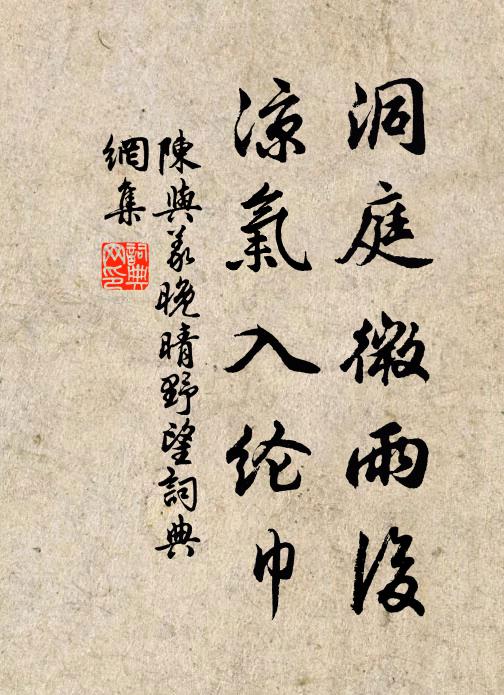 洞庭微雨後
涼氣入纶巾
陳與義晚晴野望詞典
網集
詞典
网印